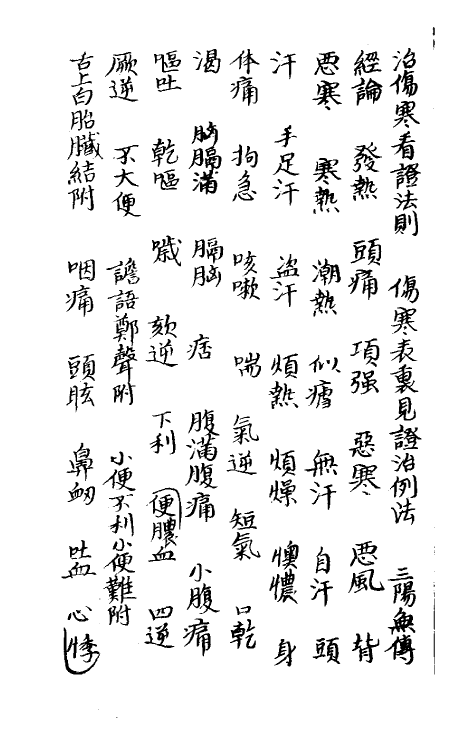 治傷寒看證法則 傷寒表裏見證治例法 三陽無傳
經論 發熱 頭痛 項强 惡寒 惡風 背
惡寒 寒熱 潮熱 似瘧 無汗 自汗 頭
汗 手足汗 盜汗 煩熱 煩燥 懊憹 身
体痛 拘急 咳嗽 喘 氣逆 短氣 口乾
渴 胸膈滿 膈胸 痞 腹滿腹痛 小腹痛
嘔吐 乾嘔 噦 欬逆 下利 便膿血 四逆
厥逆 不大便 譫語鄭聲附 小便不利小便難附
舌上白胎臟結附 咽痛 頭眩 鼻衂 吐血 心悸